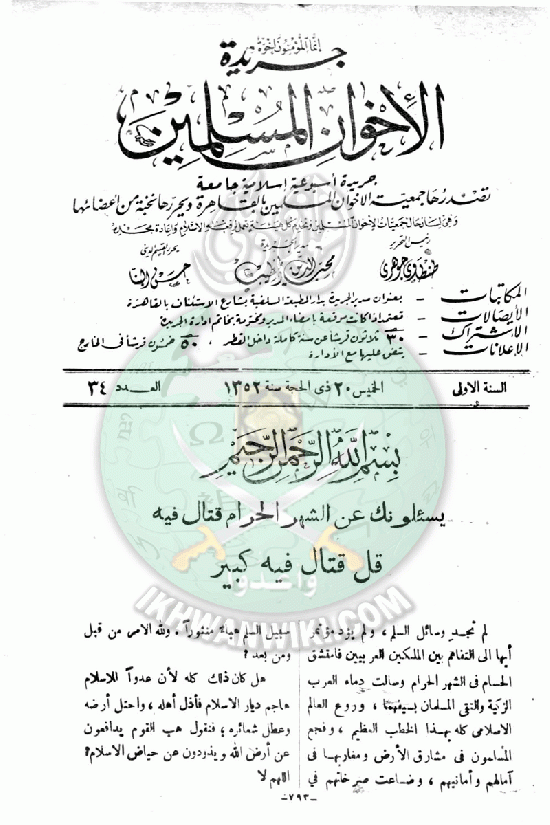 إنما المؤمنون إخوة
جريدة
الإخوان المسلمين
جريدة أسبوعية إسلامية جامعة
تصدرها جمعية الإخوان المسلمين بالقاهرة ويحررها نخبة من أعضائها
رئيس التحرير
مدير الجريدة
طنطاوي جوهري
محب الدين الخطيب
حسن البنا
المكاتبات – بعنوان مدير الجريدة بدار المطبعة السلفية بشارع الاستئناف بالقاهرة
الإيصالات – تعتمد إذا كانت موقعة بإمضاء المدير ومختومة بخاتم ادارة الجريدة
الاشتراك – ٣٠ ثلاثون قرشا عن سنة كاملة داخل القطر ، ٥٠ خمسون قرشا في الخارج
الإعلانات – يتفق عليها مع الأدارة
السنة الاولى
الخميس ٢٠ ذى الحجة سنة ١٣٥٢
العـدد ٣٤
بسم الله الرحمن الرحيم
يسئلونك عن الشهر الحرام قتال فيه
قل قتال فيه كبير
لم تجد وسائل السلم ، ولم يزد مؤتمر
أبها الى التفاهم بين الملكين العربيين فامتشق
الحسام فى الشهر الحرام وسالت دماء العرب
الزكية والتقى المسلمان بسيفيهما ، وروع العالم
الاسلامى كله بهذا الخطب العظيم ، وفجع
المسلمون فى مشارق الأرض ومغاربها فى
آمالهم وأمانيهم ، وضاعت صرخاتهم في
سبيل السلم هباء منثوراً ، ولله الامر من قبل
ومن بعد ؟
هل كان ذلك كله لأن عدواً للاسلام
هاجم ديار الاسلام فأذل أهله ، واحتل أرضه
وعطل شعائره ؛ فنقول هب القوم يدافعون
عن أرض الله ويذودون عن حياض الاسلام ؟
اللهم لا
–٧٩٣–
وأعدوا
IKHWANWIKI.COM